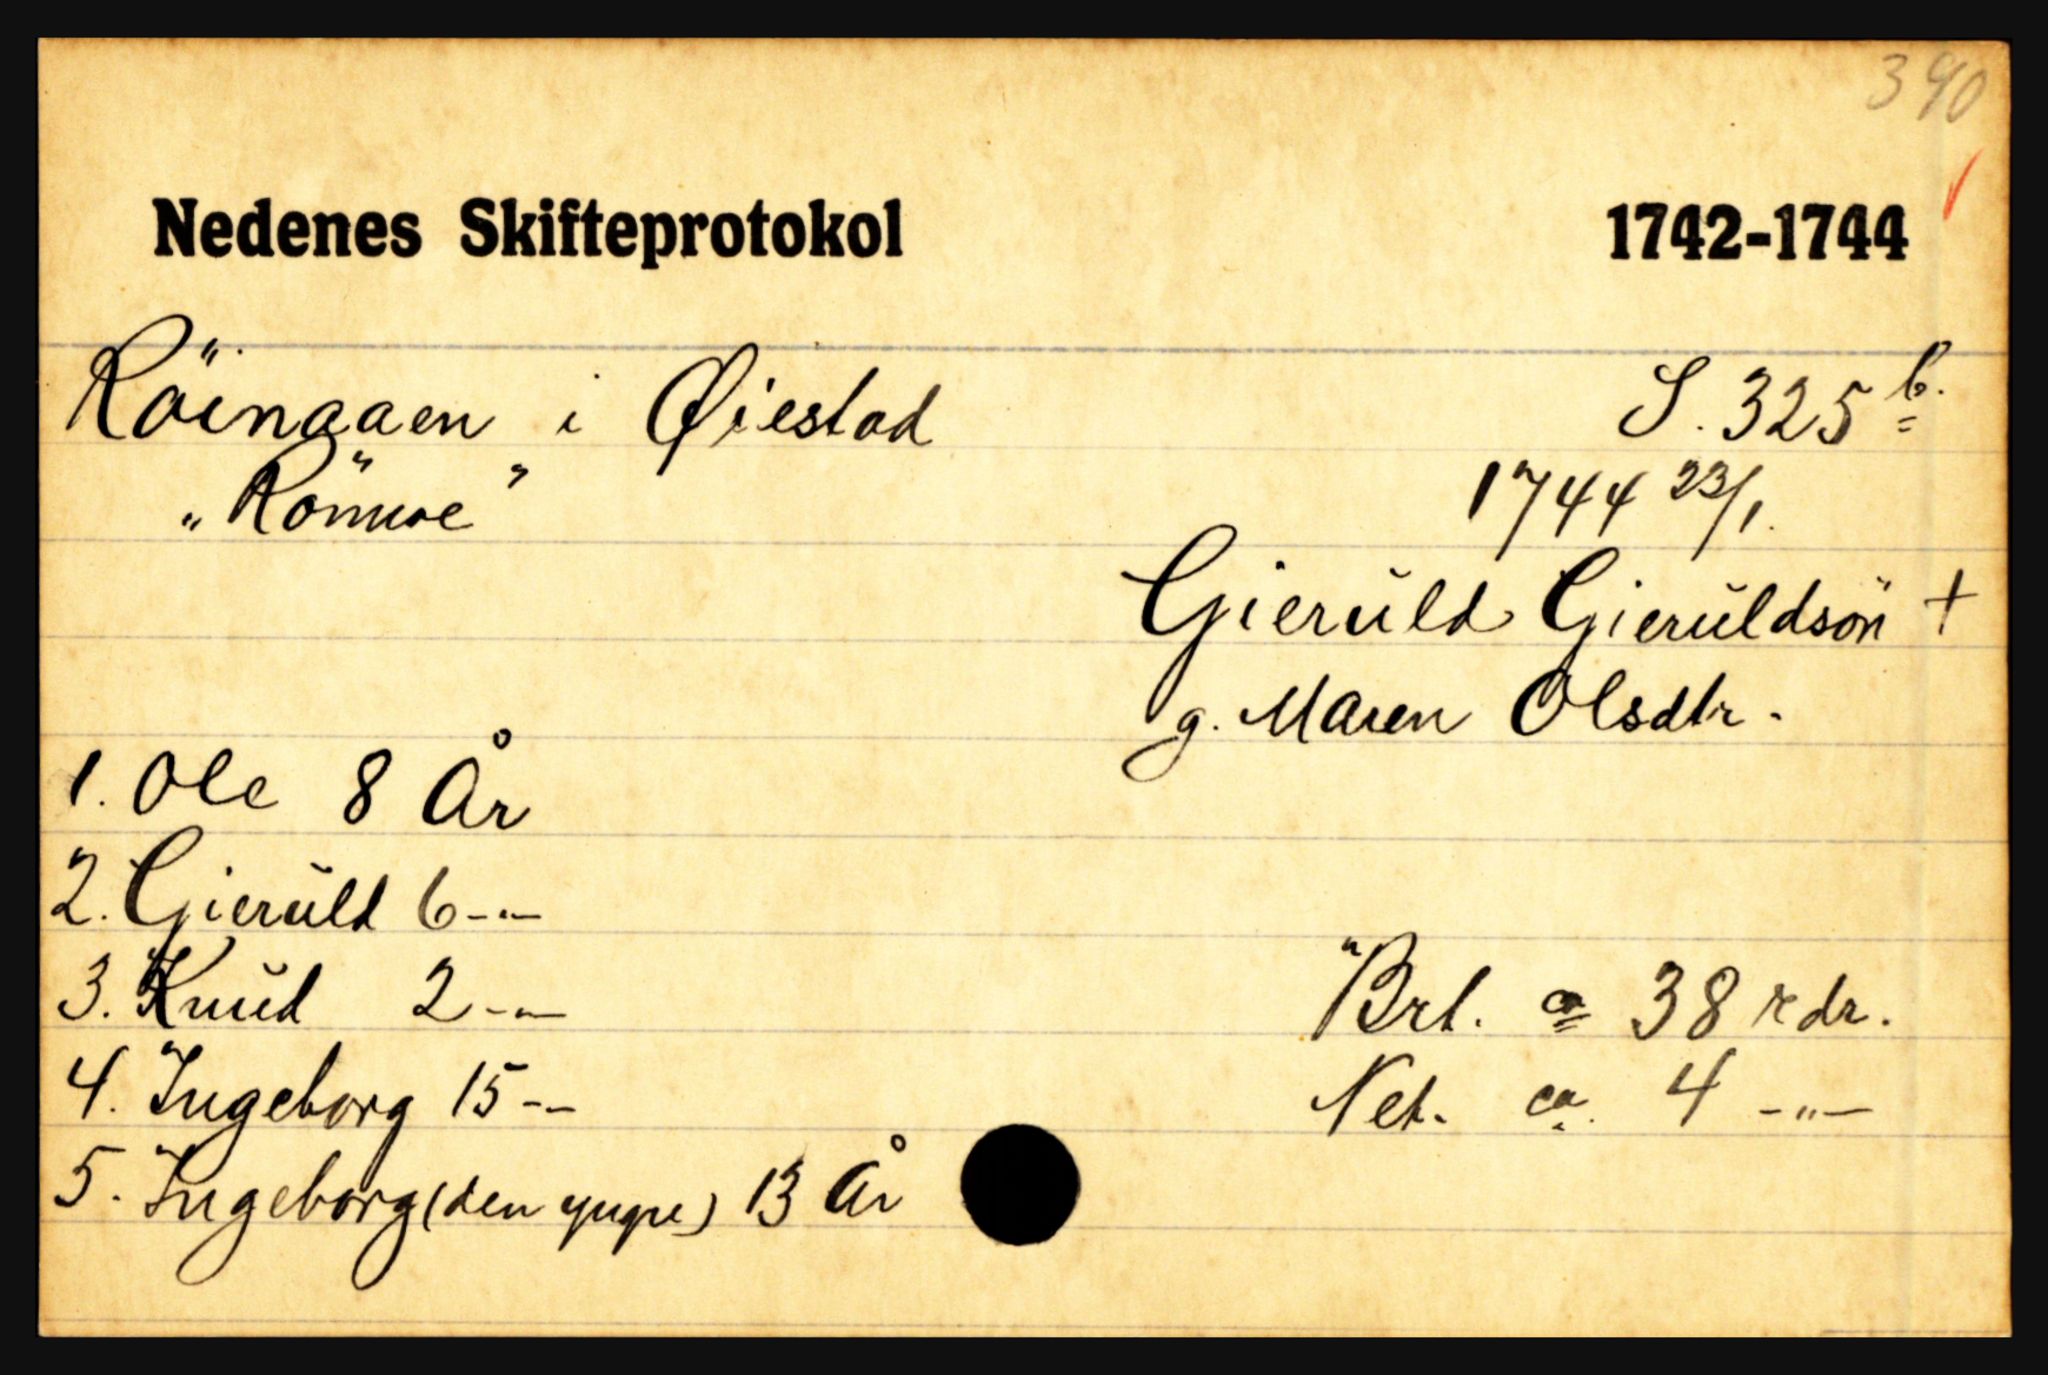 390
Nedenes Skifteprotokol 1742-1744
Röinaaen i Øiestad S. 325 b.
„Römoe" 1744 23/1.
Gieruld Gieruldsön +
g. Maren Olsdtr.
1. Ole 8 År
2. Gieruld 6 -"-
3. Knud 2 -"-
Brt. ca 38 rdr.
4. Ingeborg 15 -"-
Net. ca. 4 -"-
5. Ingeborg (den yngre) 13 År